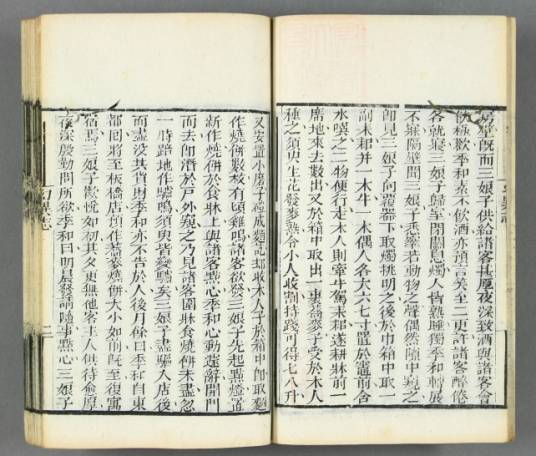 房壁既而三娘子供給諸客甚厚夜深致酒與諸客會
飲極歡季和素不飲酒亦預言笑至二更許諸客醉倦
各就寢三娘子歸室閉關息燭人皆熟睡獨季和轉展
不寐隔壁聞三娘子悉窣若動物之聲偶然隙中窺之
即見三娘子向覆器下取燭挑明之後於巾箱中取一
副耒耜并一木牛一木偶人各大六七寸置於竈前含
水噀之二物便行走木人則牽牛駕耒耜遂耕牀前一
席地來去數出又於箱中取出一裹蕎麥子受於木人
種之須臾生花發麥熟令小人收割持踐可得七八升
又安置小磨子磑成麵訖却收木人子於箱中即取麵
作燒餅數枚有頃雞鳴諸客欲發三娘子先起點燈置
新作燒餅於食牀上與諸客點心季和心動遽辭開門
而去即潛於戶外窺之乃見諸客圍牀食燒餅未盡忽
一時踣地作驢鳴須臾皆變驢矣三娘子盡驅入店後
而盡沒其貨財季和亦不告於人後月餘日季和自東
都回將至板橋店預作蕎麥燒餅大小如前既至復寓
宿焉三娘子歡悅如初其夕更無他客主人供待愈厚
夜深殷勤問所欲季和曰明晨發請隨事點心三娘子
幻異志 二